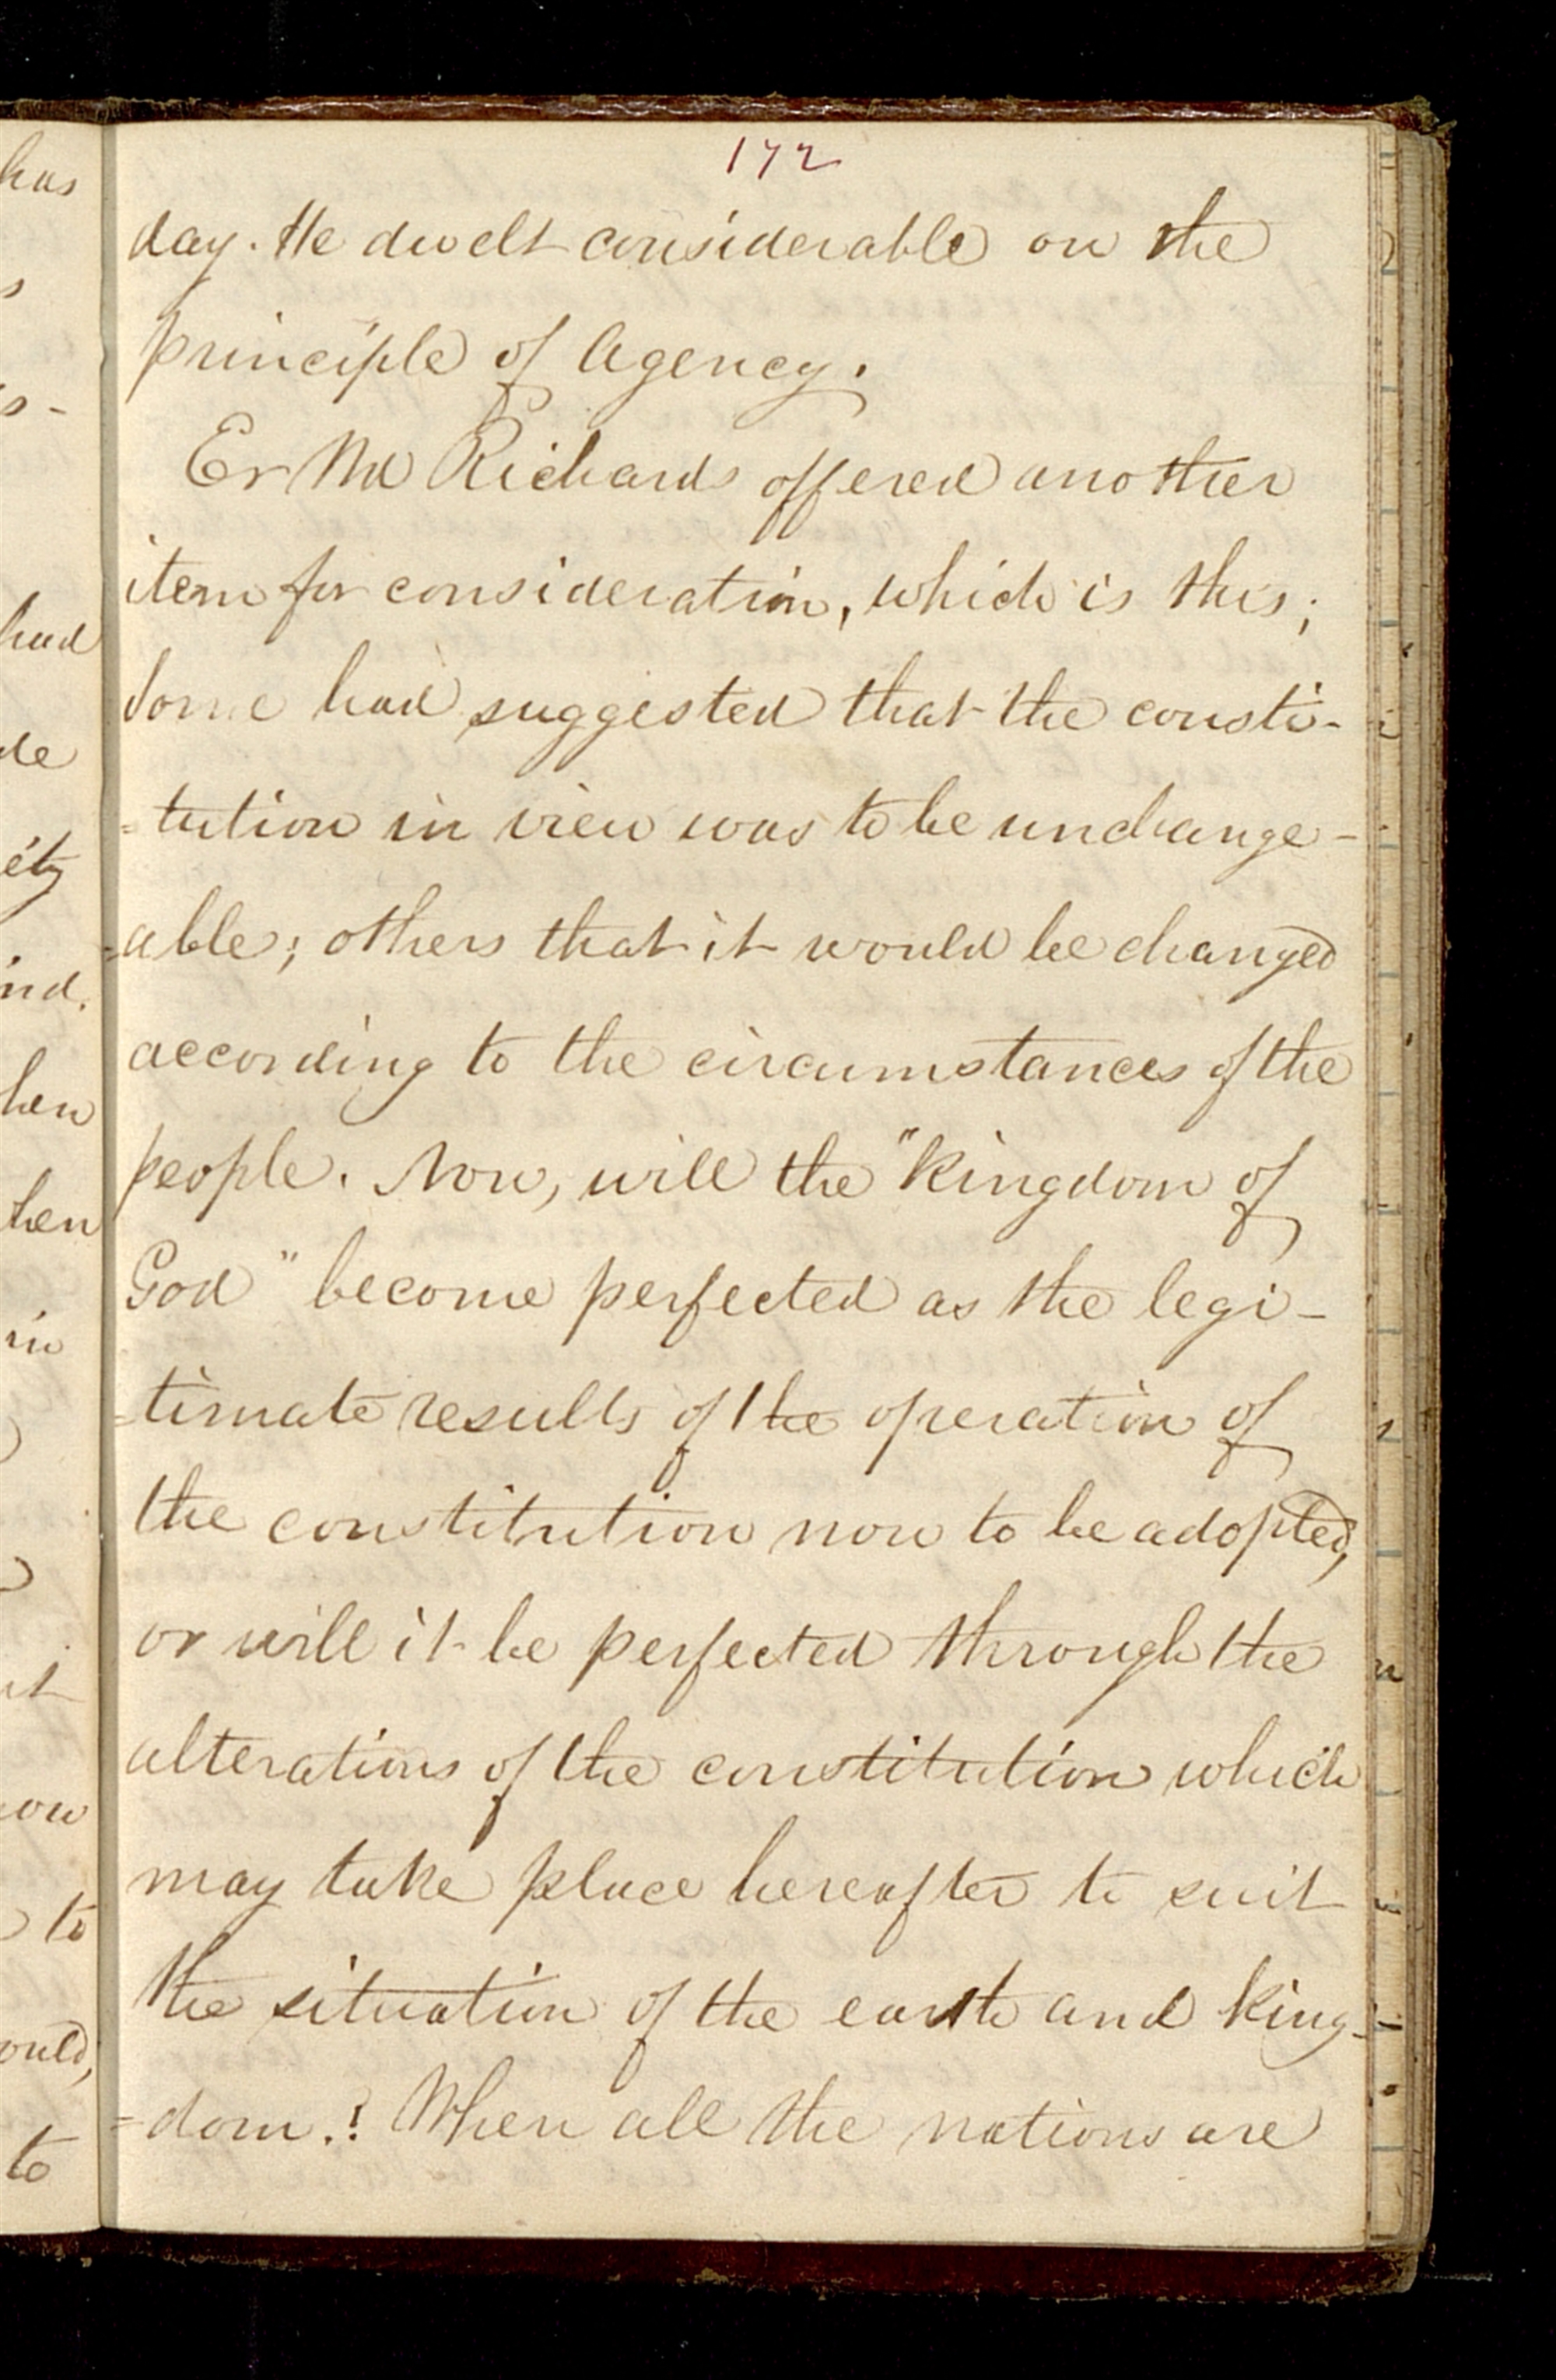 172
day. He dwelt considerable on the
principle of Agency.
Er Wd Richards offered another
item for consideration, which is this;
Some had suggested that the consti-
=tution in view was to be unchange-
=able; others that it would be changed
according to the circumstances of the
people. Now, will the "Kingdom of
God" become perfected as the legi-
=timate results of the operation of
the constitution now to be adopted,
or will it be perfected through the
alterations of the constitution which
may take place hereafter to suit
the situation of the earth and King-
=dom.? When all the nations are
has
had
ind.
hen
hen
in
it
to
ould,
to